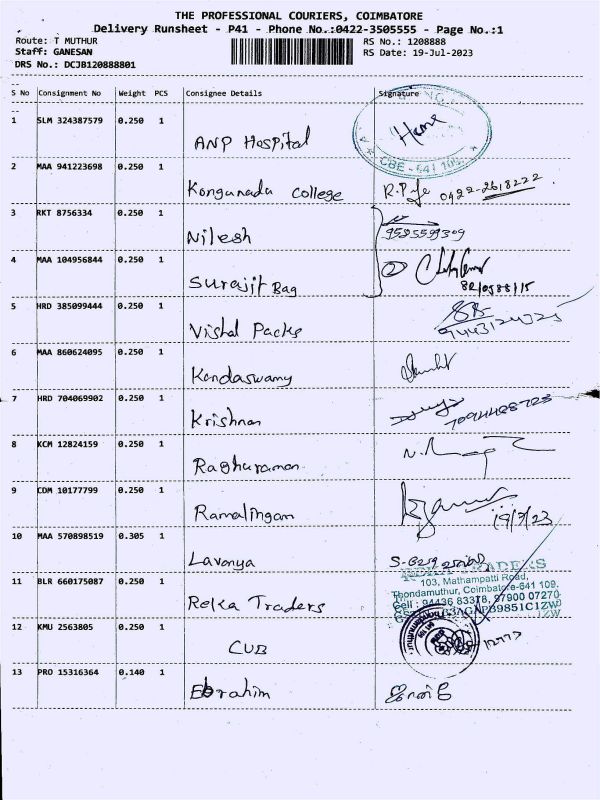 THE PROFESSIONAL COURIERS, COIMBATORE
Delivery Runsheet - P41 - Phone No.:0422-3505555 - Page No.:1
Route: T MUTHUR
RS No.: 1208888
Staff: GANESAN
RS Date: 19-Jul-2023
DRS No.: DCJB120888801
S No Consignment No Weight PCS Consignee Details Signature
1 SLM 324387579 0.250 1 ANP Hospital
CBE - 641 109
2 MAA 941223698 0.250 1 Kongunadu college 0422-2618222
3 RKT 8756334 0.250 1 Nilesh
4 MAA 104956844 0.250 1 Surajit Bag
5 HRD 385099444 0.250 1 Vishal Packs
6 MAA 860624095 0.250 1 Kandaswamy
7 HRD 704069902 0.250 1 Krishnan
8 KCM 12824159 0.250 1 Raghuraman
9 COM 10177799 0.250 1 Ramalingam 19/7/23
10 MAA 570898519 0.305 1 Lavanya
11 BLR 660175087 0.250 1 Reka Traders
103, Mathampatti Road,
Thondamuthur, Coimbatore-641 109.
Cell : 94436 83378, 97900 07270
12 KMU 2563805 0.250 1 CUB 12777
13 PRO 15316364 0.140 1 Ebrahim